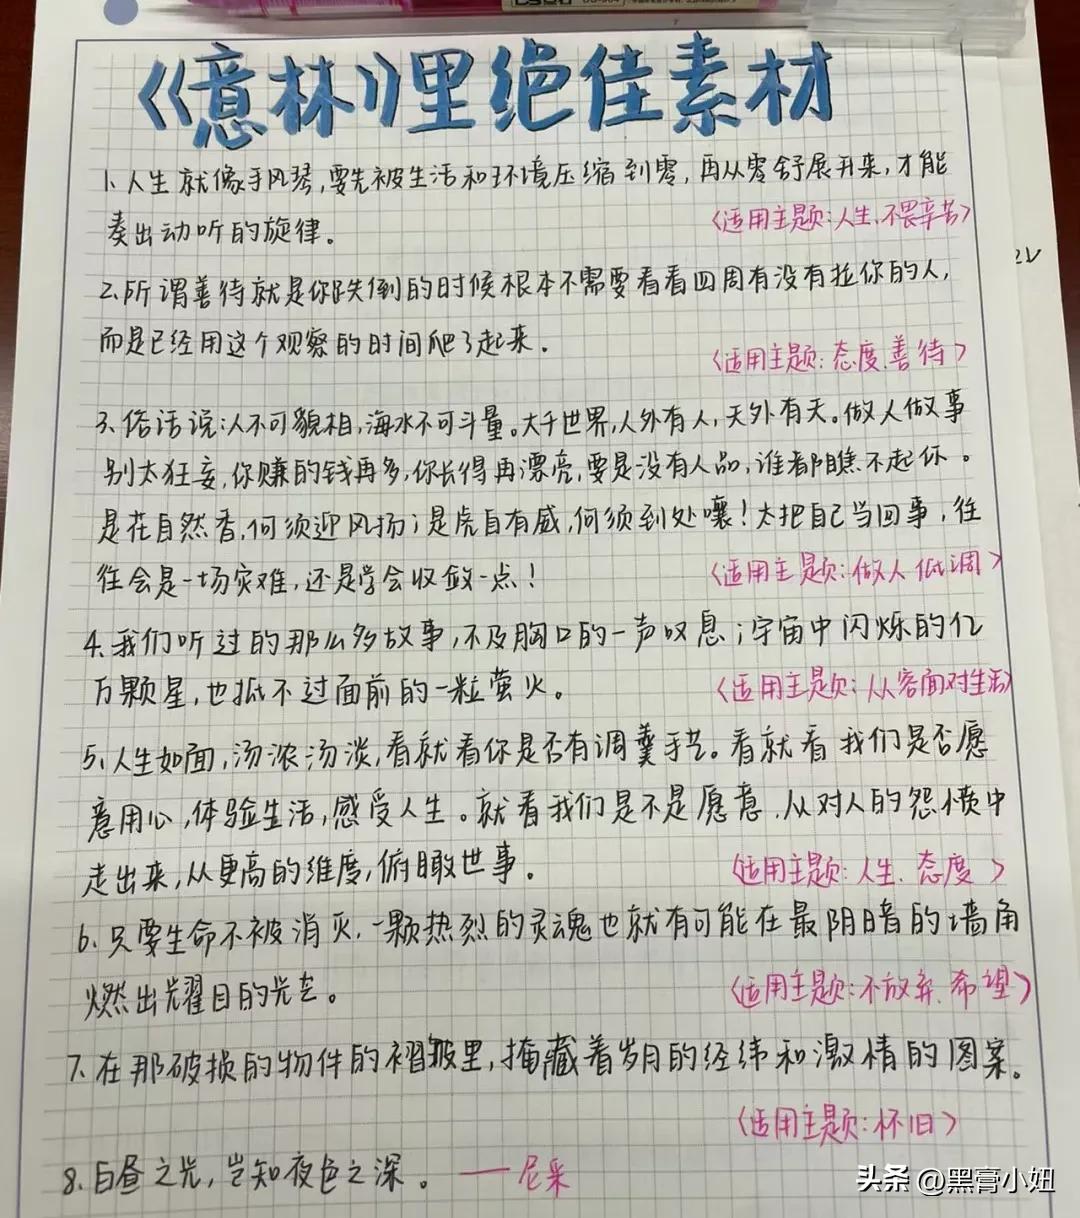 《意林》里绝佳素材
1.人生就像手风琴,要先被生活和环境压缩到零,再从零舒展开来,才能
奏出动听的旋律。
〈适用主题:人生、不畏辛苦〉
2.所谓善待就是你跌倒的时候根本不需要看看四周有没有拉你的人,
而是已经用这个观察的时间爬了起来.
〈适用主题:态度、善待〉
3.俗话说:人不可貌相,海水不可斗量。大千世界,人外有人,天外有天。做人做事
别太狂妄,你赚的钱再多,你长得再漂亮,要是没有人品,谁都瞧不起你。
是花自然香,何须迎风扬;是虎自有威,何须到处嚷!太把自己当回事,往
往会是一场灾难,还是学会收敛一点!
〈适用主题:做人低调〉
4.我们听过的那么多故事,不及胸口的一声叹息;宇宙中闪烁的亿
万颗星,也抵不过面前的一粒萤火。
〈适用主题:从容面对生活〉
5.人生如面,汤浓汤淡,看就看你是否有调羹手艺。看就看我们是否愿
意用心,体验生活,感受人生。就看我们是不是愿意,从对人的怨愤中
走出来,从更高的维度,俯瞰世事。
〈适用主题:人生、态度〉
6.只要生命不被消灭,一颗热烈的灵魂也就有可能在最阴暗的墙角
燃出光耀目的光芒。
〈适用主题:不放弃、希望〉
7.在那破损的物件的褶皱里,掩藏着岁月的经纬和激情的图案。
〈适用主题:怀旧〉
8.白昼之光,岂知夜色之深。——尼采
头条 @黑膏小妞